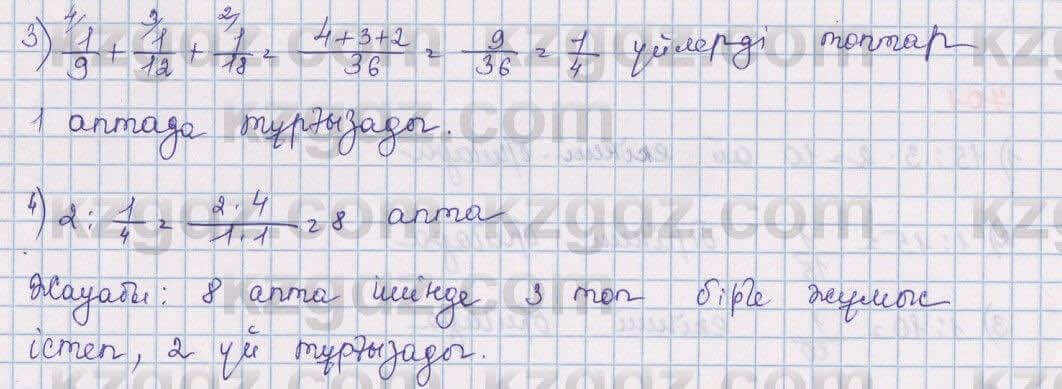 3) ⁴/1/9 + ³/1/12 + ²/1/18 = 4+3+2/36 = 9/36 = 1/4 үйлерді топтар
1 аптада тұрғызады.
4) 2 : 1/4 = 2·4/1·1 = 8 апта
Жауабы: 8 апта ішінде 3 топ бірге жұмыс
істеп, 2 үй тұрғызады.
kzgdz.com